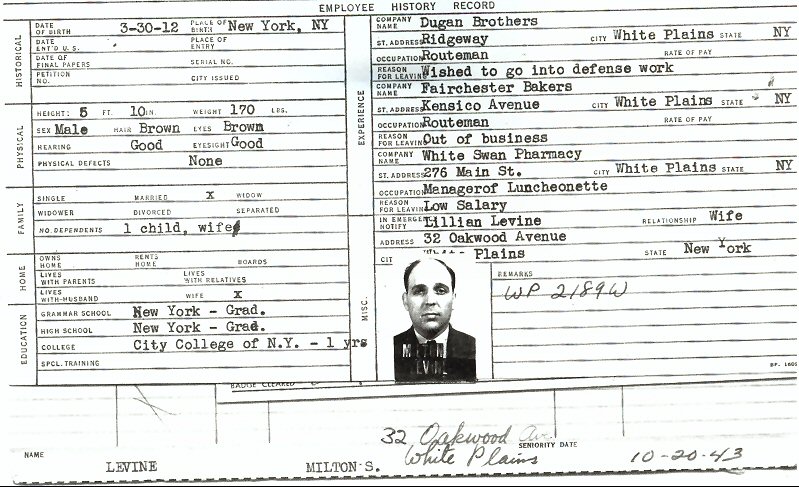 EMPLOYEE HISTORY RECORD
HISTORICAL
DATE OF BIRTH 3-30-12 PLACE OF BIRTH New York, NY
DATE ENT'D U.S. PLACE OF ENTRY
DATE OF FINAL PAPERS SERIAL NO.
PETITION NO. CITY ISSUED
PHYSICAL
HEIGHT: 5 FT. 10 IN. WEIGHT 170 LBS.
SEX Male HAIR Brown EYES Brown
HEARING Good EYESIGHT Good
PHYSICAL DEFECTS None
FAMILY
SINGLE MARRIED X WIDOW
WIDOWER DIVORCED SEPARATED
NO. DEPENDENTS 1 child, wife
HOME
OWNS HOME RENTS HOME BOARDS
LIVES WITH PARENTS LIVES WITH RELATIVES
LIVES WITH-HUSBAND WIFE X
EDUCATION
GRAMMAR SCHOOL New York - Grad.
HIGH SCHOOL New York - Grad.
COLLEGE City College of N.Y. - 1 yrs
SPCL. TRAINING
EXPERIENCE
COMPANY NAME Dugan Brothers
ST. ADDRESS Ridgeway CITY White Plains STATE NY
OCCUPATION Routeman RATE OF PAY
REASON FOR LEAVING Wished to go into defense work
COMPANY NAME Fairchester Bakers
ST. ADDRESS Kensico Avenue CITY White Plains STATE NY
OCCUPATION Routeman RATE OF PAY
REASON FOR LEAVING Out of business
COMPANY NAME White Swan Pharmacy
ST. ADDRESS 276 Main St. CITY White Plains STATE NY
OCCUPATION Managerof Luncheonette
REASON FOR LEAVING Low Salary
MISC.
IN EMERGE NOTIFY Lillian Levine RELATIONSHIP Wife
ADDRESS 32 Oakwood Avenue
CIT White Plains STATE New York
REMARKS
WP 2189W
MILTON
LEVINE
BADGE CLEARED
32 Oakwood Av.
White Plains
SENIORITY DATE
10-20-43
NAME
LEVINE MILTON S.